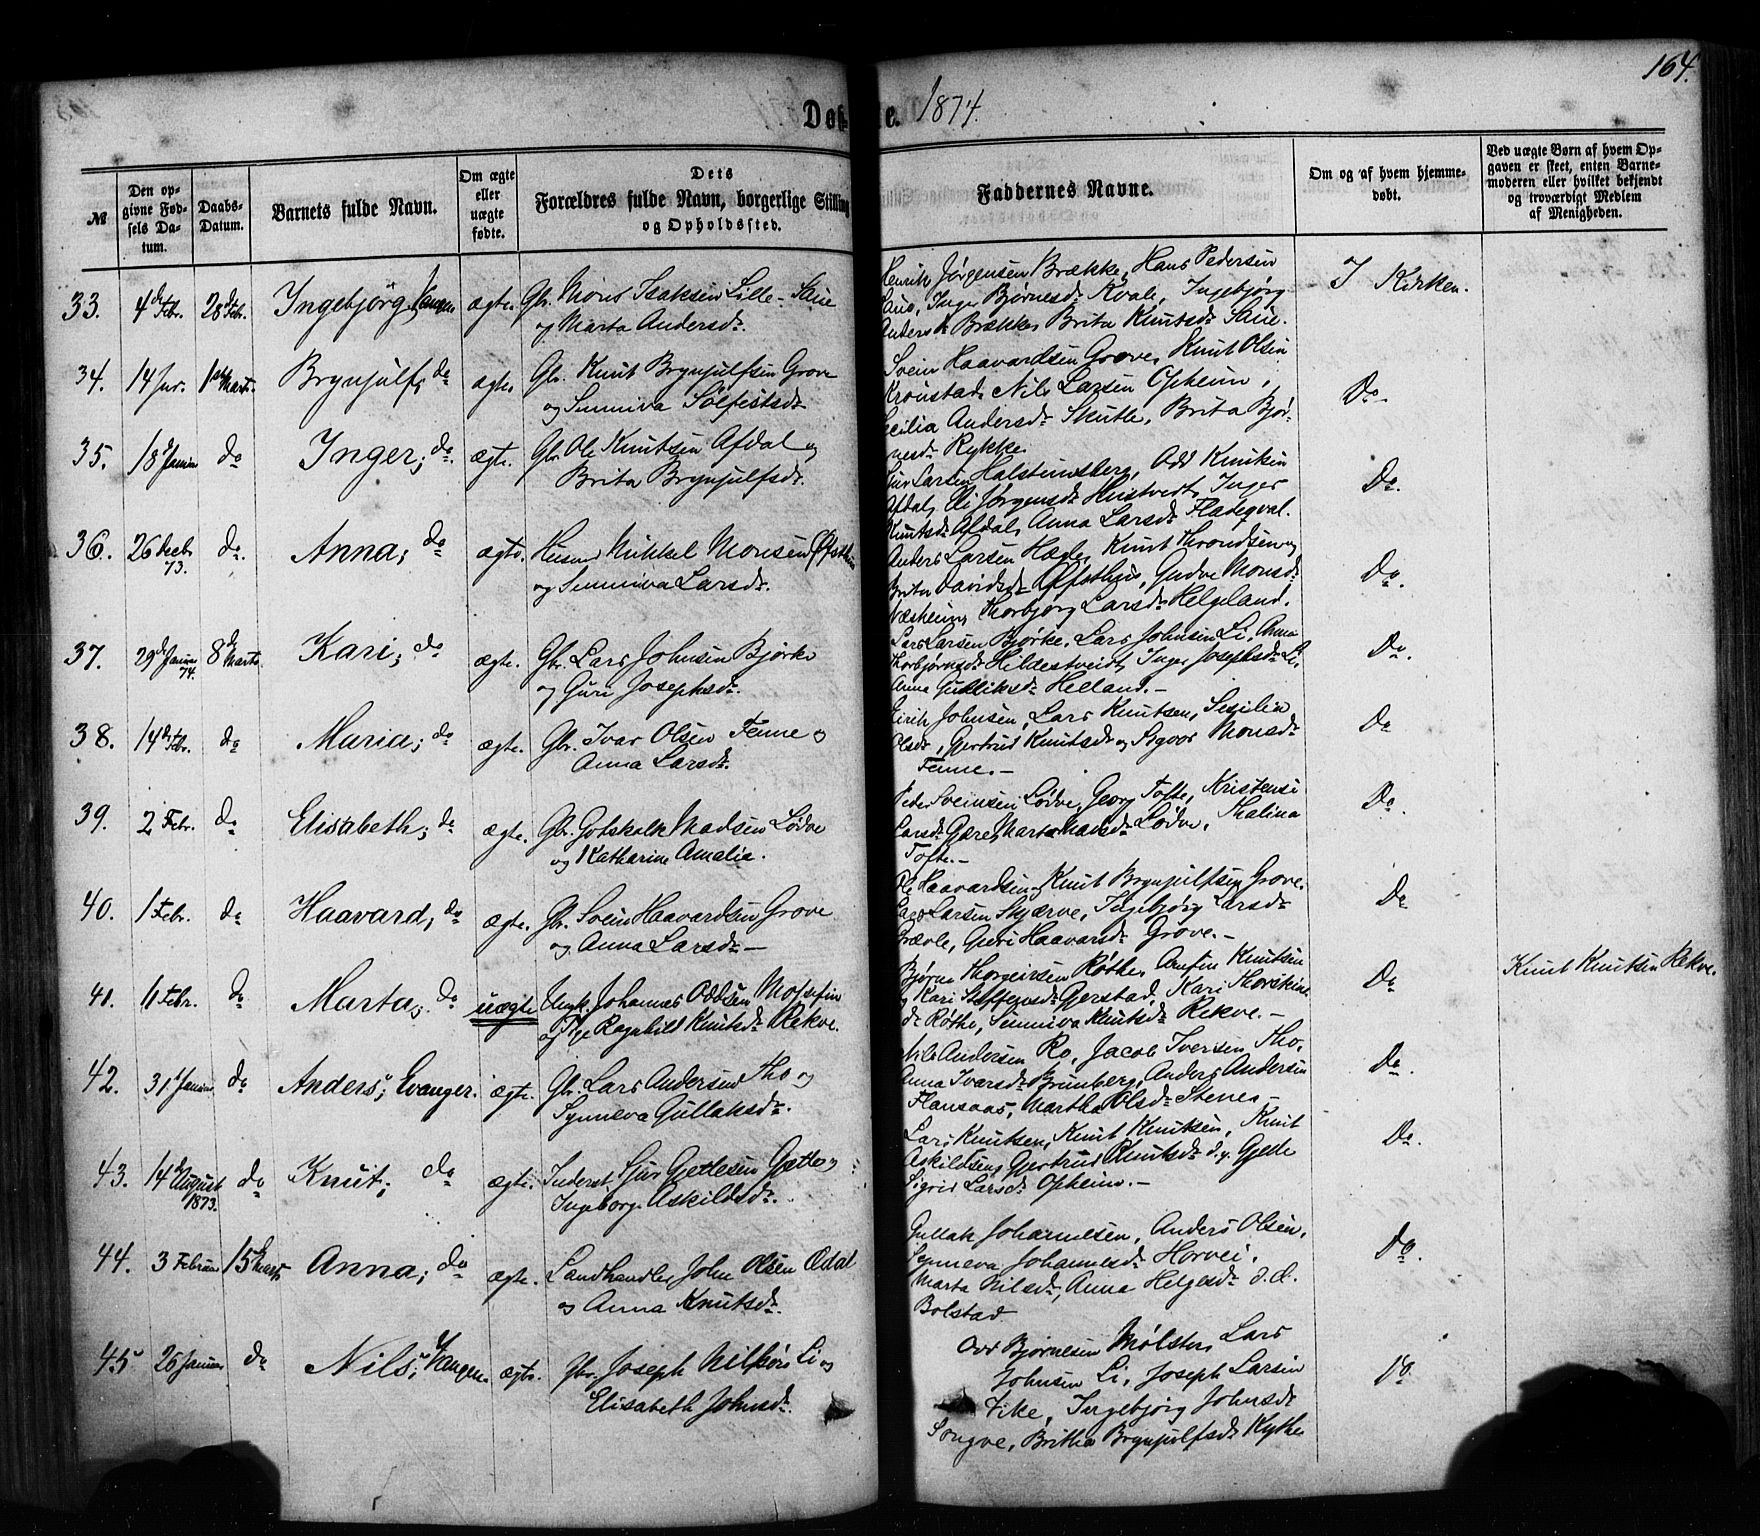 164.
Døbte. 1874.
№
Den opgivne Fødsels Datum.
Daabs-Datum.
Barnets fulde Navn.
Om ægte eller uægte fødte.
Dets Forældres fulde Navn, borgerlige Stilling og Opholdssted.
Faddernes Navne.
Om og af hvem hjemmedøbt.
Ved uægte Børn af hvem Opgaven er skeet, enten Barnemoderen eller hvilket bekjendt og troværdigt Medlem af Menigheden.
33. 4de Febr. 28de Febr. Ingebjörg, Vangen ægte. Gbr. Mons Isaksen Lille-Saue
og Marta Andersdr.
Henrik Jørgensen Brække, Hans Pedersen
Saue, Inger Bjørnesdr Kvale, Ingebjørg
Andersdr Brække, Brita Knutsdr Saue.
I Kirken.
34. 14 Jnr. 1ste Marts. Brynjulf, do ægte. Gbr. Knut Brynjulfsen Grove
og Sunniva Solfestsdr
Svein Haavardsen Grove, Knut Olsen
Kronstad, Nils Larsen Opheim,
Cecilia Andersdr Skutle, Brita Bjør-
nesdr Rykke.
Do
35. 18de Januar do Inger, do. ægte. Gbr. Ole Knutsen Afdal og
Brita Brynjulfsdr.
Sjur Larsen Halsteinsberg, Odd Knutsen
Afdal, Eli Jørgensdr Hustvedt, Inger
Knutsdr Afdal, Anna Larsdr Fladeqval.
Do.
36. 26 Decbr 73. do. Anna, do ægte. Husmd Mikkel Monsen
og Sunniva Larsdr.
Anders Larsen Hægle, Knut Throndsen og
Brita Davidsdr Gudve Monsdr
Næsheim, Thorbjørg Larsdr Helgeland.
Do.
37. 29de Januar 74. 8de Marts. Kari, do ægte. Gbr. Lars Johnsen Bjørke
og Guri Josephsdr.
Lars Larsen Bjørke, Lars Johnsen Li, Anna
Thorbjørnsdr Hildestveidt, Inger Josephsdr Li,
Anna Gulliksdr Helland.-
Do.
38. 14de Febr. do Maria, do ægte. Gbr. Ivar Olsen Fenne og
Anna Larsdr.
Eirik Johnsen, Lars Knutsen, Sesilia
Olsdr, Gertrud Knutsdr og Sygvor Monsdr
Fenne.-
Do
39. 2 Febr. do Elisabeth, do ægte. Gbr. Gotskalk Madsen Lødve
og Katharine Amalia.
Peder Sveinsen Lødve, Georg Tofte, Kristensi
Larsdr Gjære, Marta Madsdr Lødve, Thalina
Tofte.-
Do.
40. 1 Febr. do Haavard, do ægte. Gbr. Svein Haavardsen Grove
og Anna Larsdr-
Ole Haavardsen, Knut Brynjulfsen Grove,
Lars Larsen Skjerve, Ingebjørg Larsdr
Prævle, Guri Haavarsdr Grove.-
Do
41. 11 Febr. do Marta, do uægte Ungk. Johannes Oddsen Mossefin
og Pige Ragnhild Knutsdr Rekve.
Bjørne Thorgeirsen Røthe, Arnfin Knutsen
og Kari Steffensdr Gjerstad, Kari Thorskins-
dr Røthe, Sunniva Knutsdr Rekve.-
Do
Knut Knutsen Rekve.
42. 31 Januar do Anders, Evanger. ægte. Gbr. Lars Andersen Tho og
Synneva Gullaksdr.
Nils Andersen Ro, Jacob Iversen Tho,
Anna Ivarsdr Grünberg, Anders Andersen
Flansaas, Martha Olsdr Stenes-
Do.
43. 14de August 1873. do Knut, do ægte. Inderst Sjur Gjetlesen Gjette og
Ingeborg Askildsdr.
Lars Knutsen, Knut Knutsen, Knut
Askildsen, Gjertrud Knutsdr d.y. Gjelle
Sigrid Larsdr Opheim.-
Do.
44. 3 Februar 15de Marts Anna, do ægte. Landhandler John Olsen Ædal
og Anna Knutsdr.
Gullak Johannesen, Anders Olsen,
Synneva Johannesdr Horvei,
Marta Nilsdr, Anna Helgesdr d.æ.
Bolstad
Do.
45 26 Januar do Nils, Vangen. ægte. Gbr. Joseph Nilssøn Li og
Elisabeth Johnsdr.
Ivar Bjørnesen Mølster, Lars
Johnsen Li, Joseph Larsen
Vike, Ingebjørg Johnsdr
Songve, Britha Brynjulfsdr Kythe
Do.